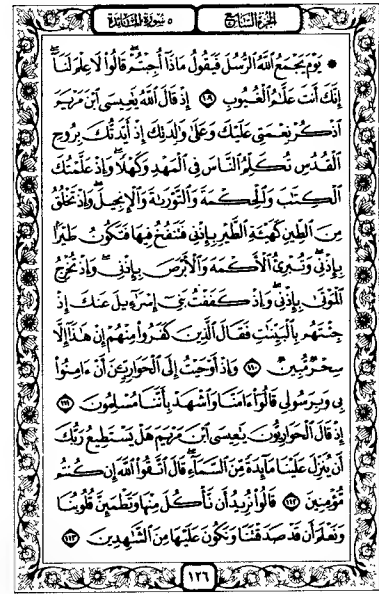 الجزء السابع ٥ سورة المائدة
۞ يَوْمَ يَجْمَعُ ٱللَّهُ ٱلرُّسُلَ فَيَقُولُ مَاذَآ أُجِبْتُمْ ۖ قَالُوا۟ لَا عِلْمَ لَنَآ ۖ
إِنَّكَ أَنتَ عَلَّٰمُ ٱلْغُيُوبِ ١٠٩ إِذْ قَالَ ٱللَّهُ يَٰعِيسَى ٱبْنَ مَرْيَمَ
ٱذْكُرْ نِعْمَتِى عَلَيْكَ وَعَلَىٰ وَٰلِدَتِكَ إِذْ أَيَّدتُّكَ بِرُوحِ
ٱلْقُدُسِ تُكَلِّمُ ٱلنَّاسَ فِى ٱلْمَهْدِ وَكَهْلًا ۖ وَإِذْ عَلَّمْتُكَ
ٱلْكِتَٰبَ وَٱلْحِكْمَةَ وَٱلتَّوْرَىٰةَ وَٱلْإِنجِيلَ ۖ وَإِذْ تَخْلُقُ
مِنَ ٱلطِّينِ كَهَيْـَٔةِ ٱلطَّيْرِ بِإِذْنِى فَتَنفُخُ فِيهَا فَتَكُونُ طَيْرًۢا
بِإِذْنِى ۖ وَتُبْرِئُ ٱلْأَكْمَهَ وَٱلْأَبْرَصَ بِإِذْنِى ۖ وَإِذْ تُخْرِجُ
ٱلْمَوْتَىٰ بِإِذْنِى ۖ وَإِذْ كَفَفْتُ بَنِىٓ إِسْرَٰٓءِيلَ عَنكَ إِذْ
جِئْتَهُم بِٱلْبَيِّنَٰتِ فَقَالَ ٱلَّذِينَ كَفَرُوا۟ مِنْهُمْ إِنْ هَٰذَآ إِلَّا
سِحْرٌ مُّبِينٌ ١١٠ وَإِذْ أَوْحَيْتُ إِلَى ٱلْحَوَارِيِّـۧنَ أَنْ ءَامِنُوا۟
بِى وَبِرَسُولِى قَالُوٓا۟ ءَامَنَّا وَٱشْهَدْ بِأَنَّنَا مُسْلِمُونَ ١١١
إِذْ قَالَ ٱلْحَوَارِيُّونَ يَٰعِيسَى ٱبْنَ مَرْيَمَ هَلْ يَسْتَطِيعُ رَبُّكَ
أَن يُنَزِّلَ عَلَيْنَا مَآئِدَةً مِّنَ ٱلسَّمَآءِ ۖ قَالَ ٱتَّقُوا۟ ٱللَّهَ إِن كُنتُم
مُّؤْمِنِينَ ١١٢ قَالُوا۟ نُرِيدُ أَن نَّأْكُلَ مِنْهَا وَتَطْمَئِنَّ قُلُوبُنَا
وَنَعْلَمَ أَن قَدْ صَدَقْتَنَا وَنَكُونَ عَلَيْهَا مِنَ ٱلشَّٰهِدِينَ ١١٣
١٢٦